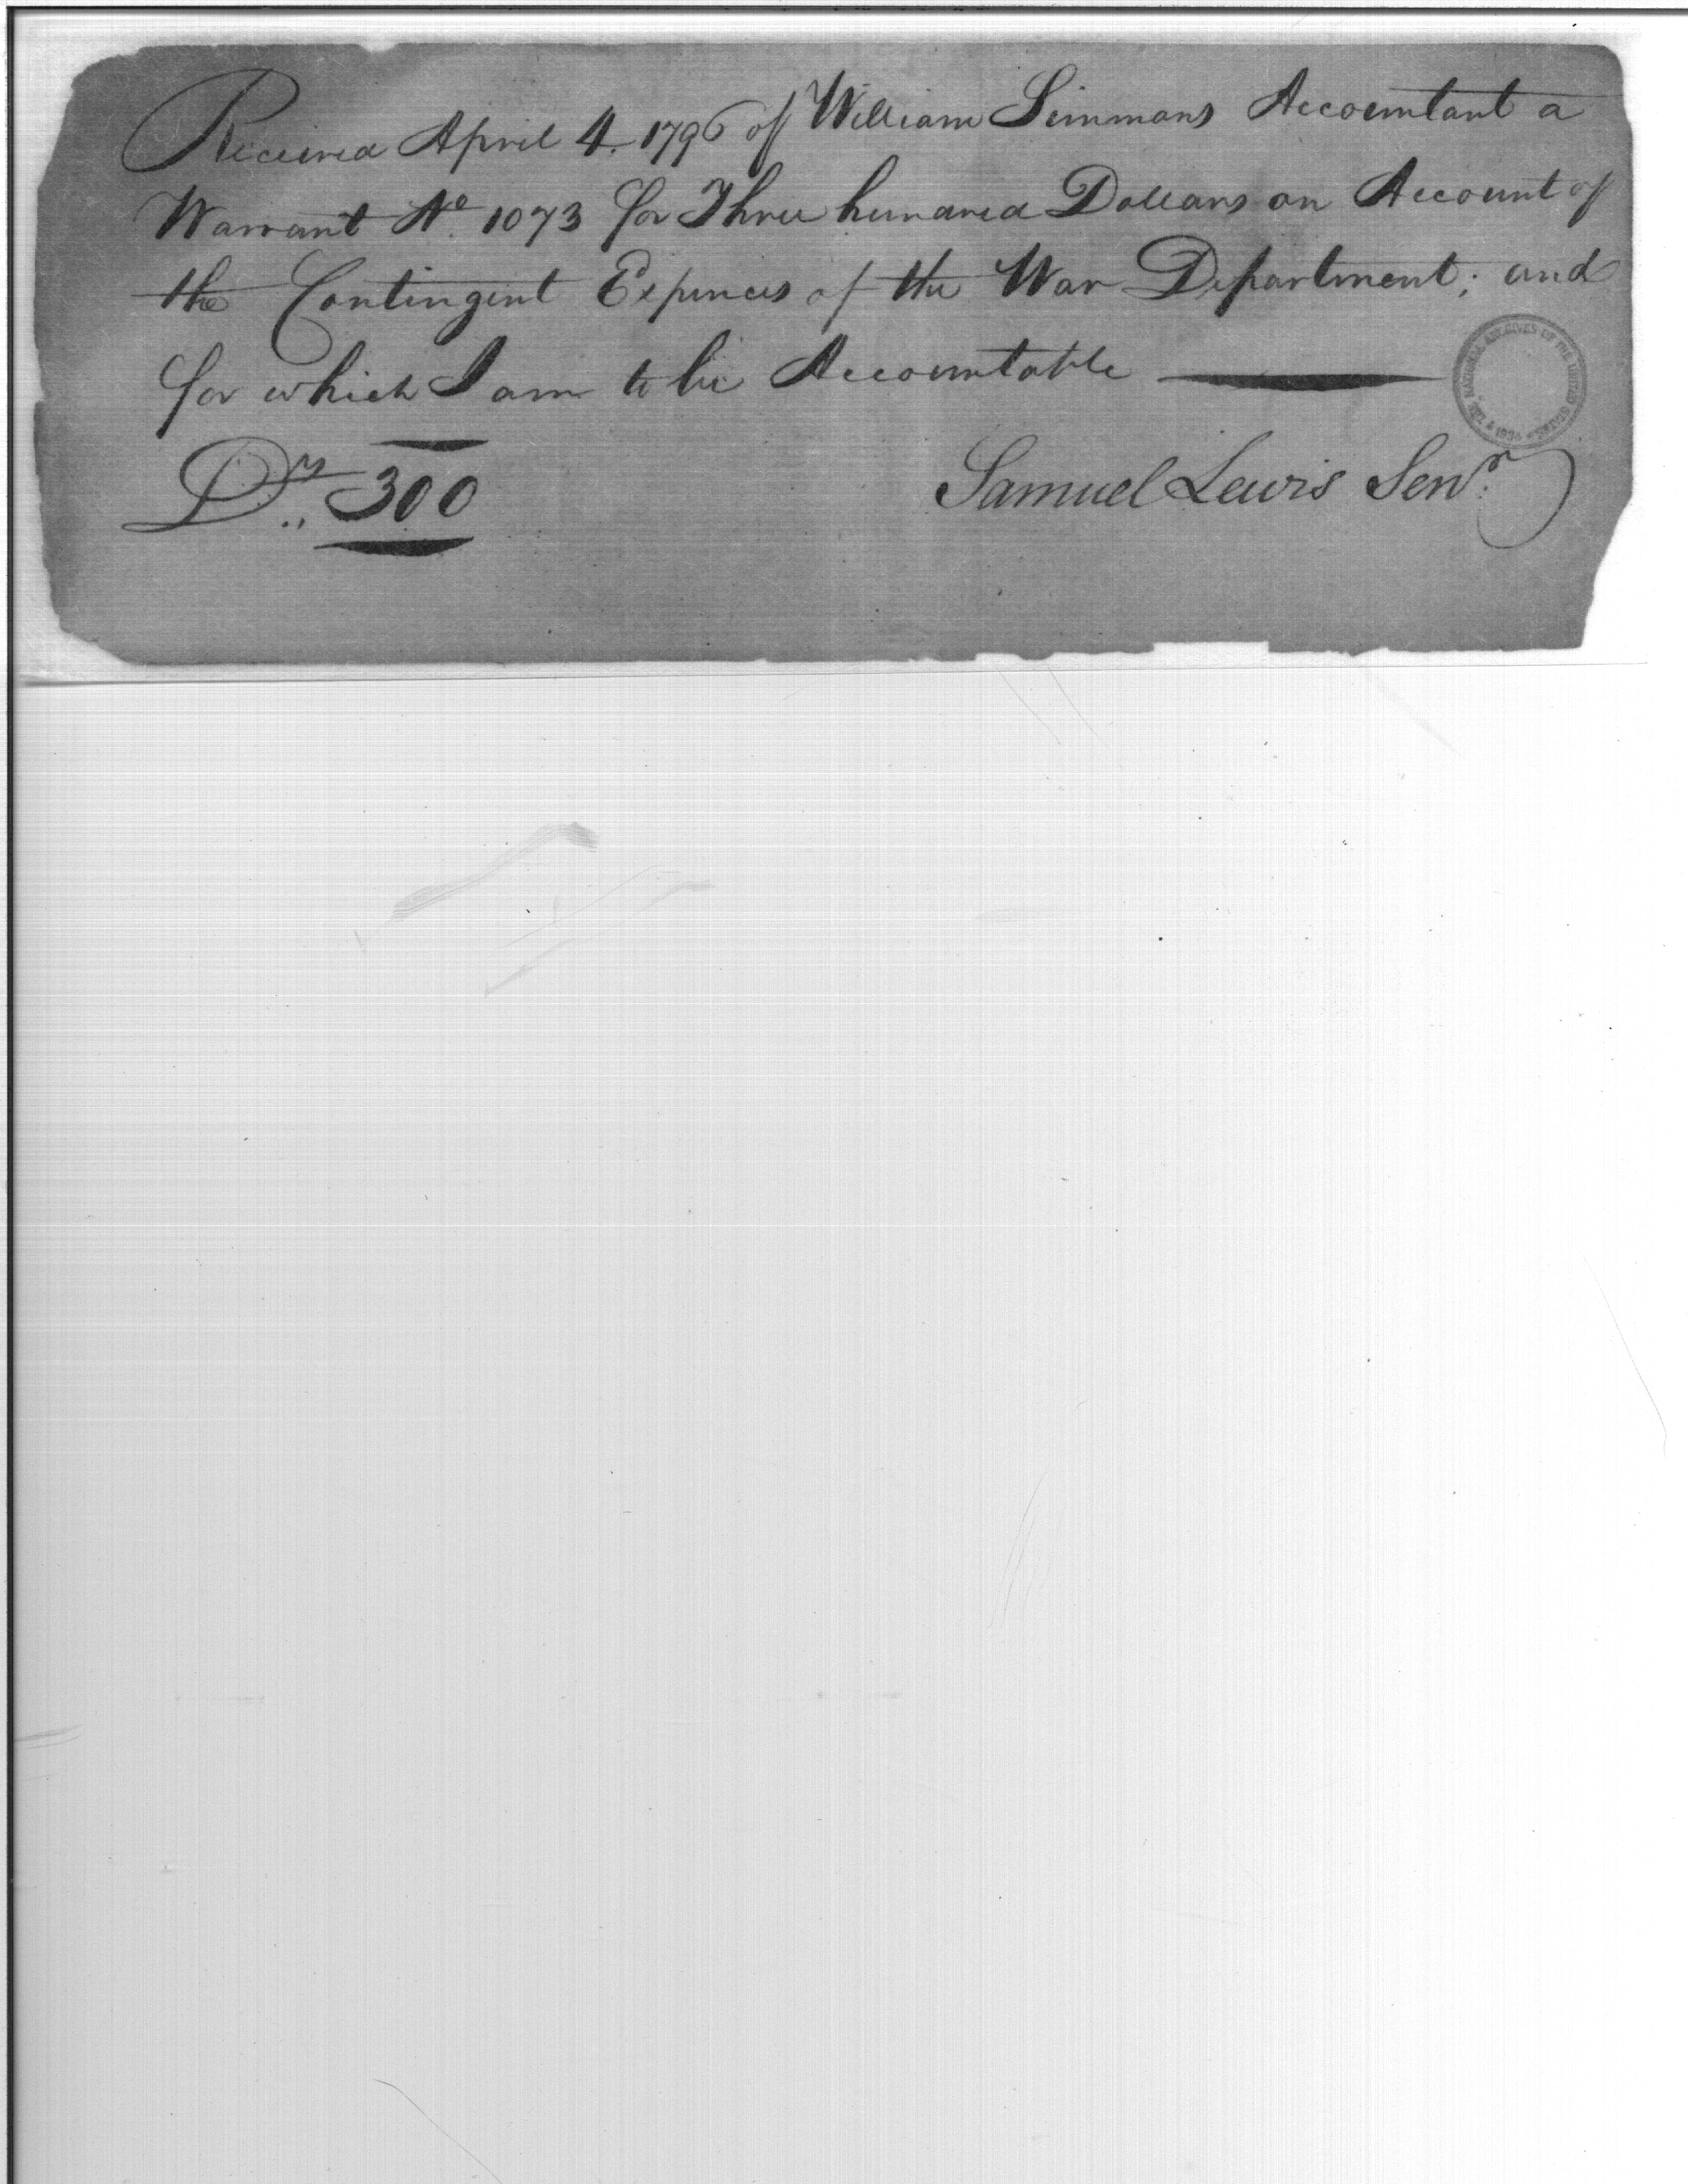 Received April 4. 1796 of William Simmons Accountant a
Warrant No. 1073 for Three hundred Dollars on Account of
the Contingent Expences of the War Department; and
for which I am to be Accountable
Drs. 300
Samuel Lewis Senr.
THE NATIONAL ARCHIVES OF THE UNITED STATES
1934